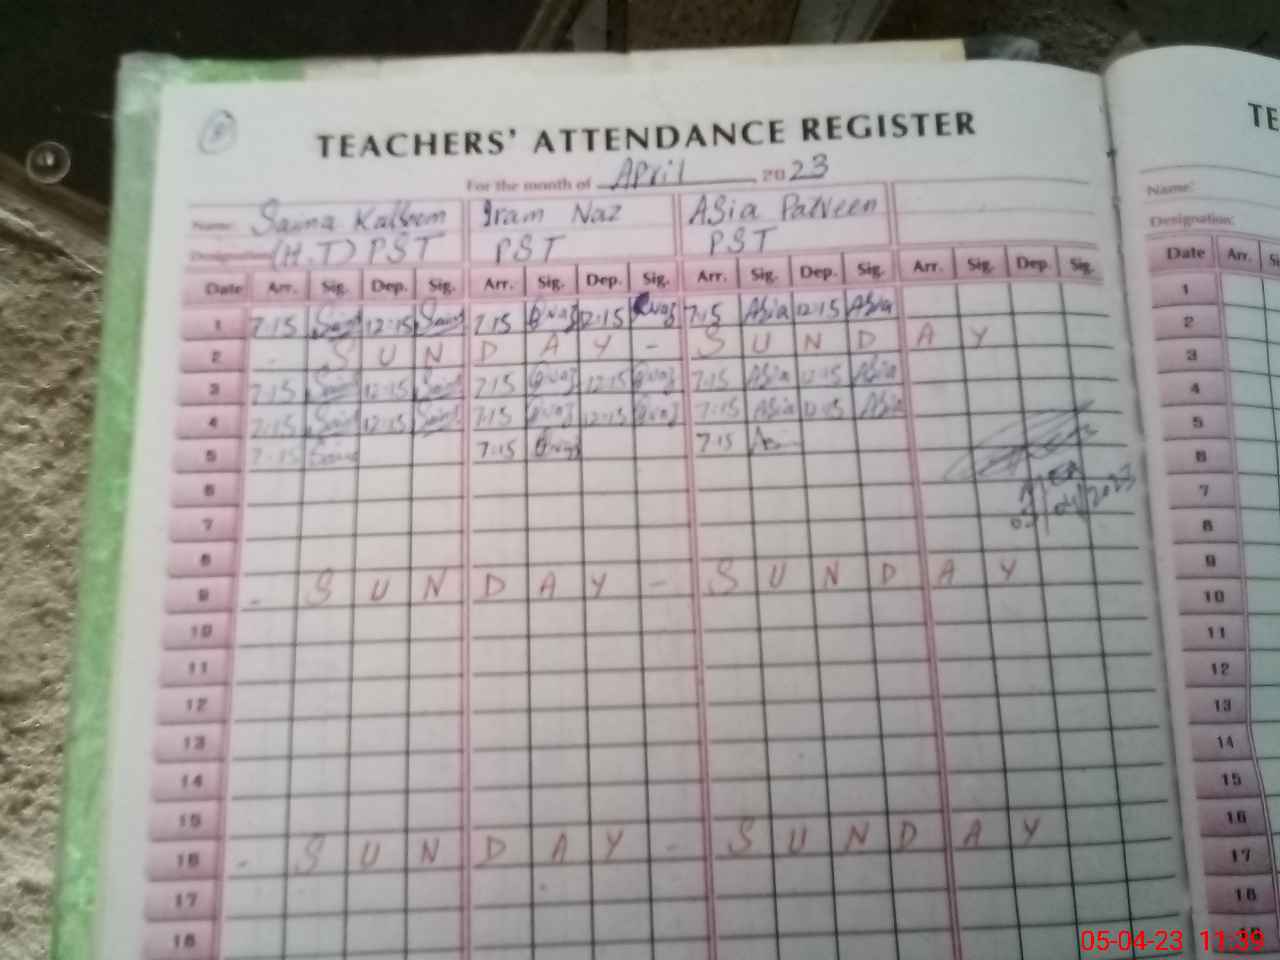 8
TEACHERS' ATTENDANCE REGISTER
TE
For the month of April 2023
Name: Saima Kalsoom Iram Naz Asia Parveen
Name:
Designation: (H.T) PST PST PST
Designation:
Date Arr. Sig. Dep. Sig. Arr. Sig. Dep. Sig. Arr. Sig. Dep. Sig. Arr. Sig. Dep. Sig.
Date Arr.
1 7:15 12:15 7:15 12:15 7:15 Asia 12:15 Asia
2 - S U N D A Y - S U N D A Y
3 7:15 12:15 7:15 12:15 7:15 Asia 12:15 Asia
4 7:15 12:15 7:15 12:15 7:15 Asia 12:15 Asia
5 7:15 7:15 7:15
6
7
8
9 - S U N D A Y - S U N D A Y
10
11
12
13
14
15
16 - S U N D A Y - S U N D A Y
17
18
1
2
3
4
5
6
7
8
9
10
11
12
13
14
15
16
17
18
05-04-23 11:39